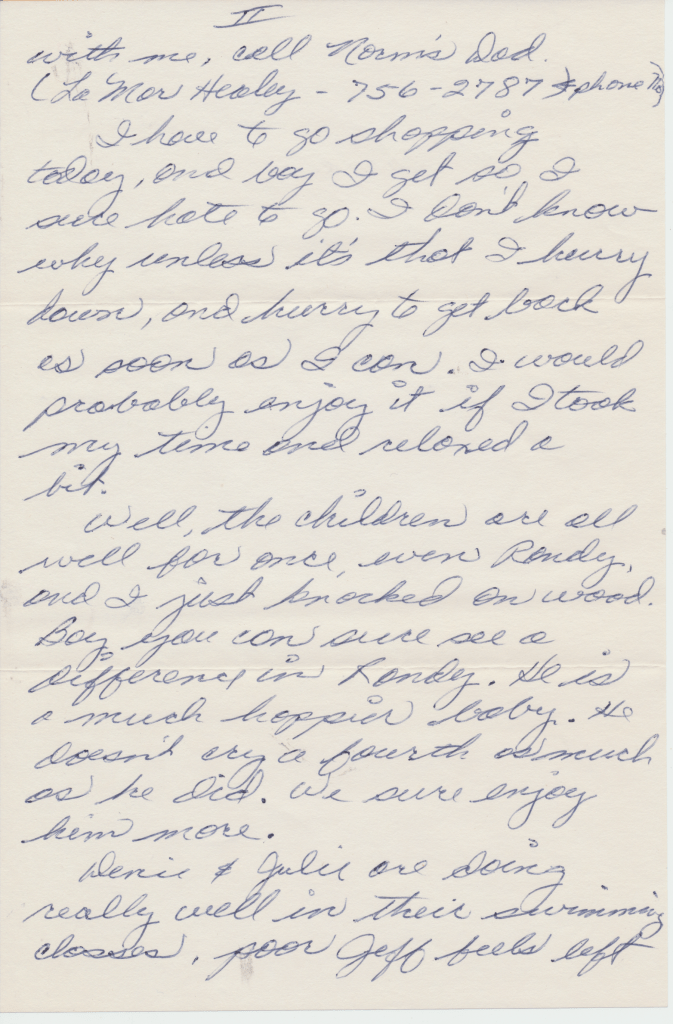 II
with me, call Norm's Dad.
(La Mar Healey - 756-2787 phone no)
I have to go shopping
today, and boy I get so I
sure hate to go. I don't know
why unless it's that I hurry
down, and hurry to get back
as soon as I can. I would
probably enjoy it if I took
my time and relaxed a
bit.
Well, the children are all
well for once, even Randy,
and I just knocked on wood.
Boy you can sure see a
difference in Randy. He is
a much happier baby. He
doesn't cry a fourth as much
as he did. We sure enjoy
him more.
& Julie are doing
really well in their swimming
classes, poor Jeff feels left